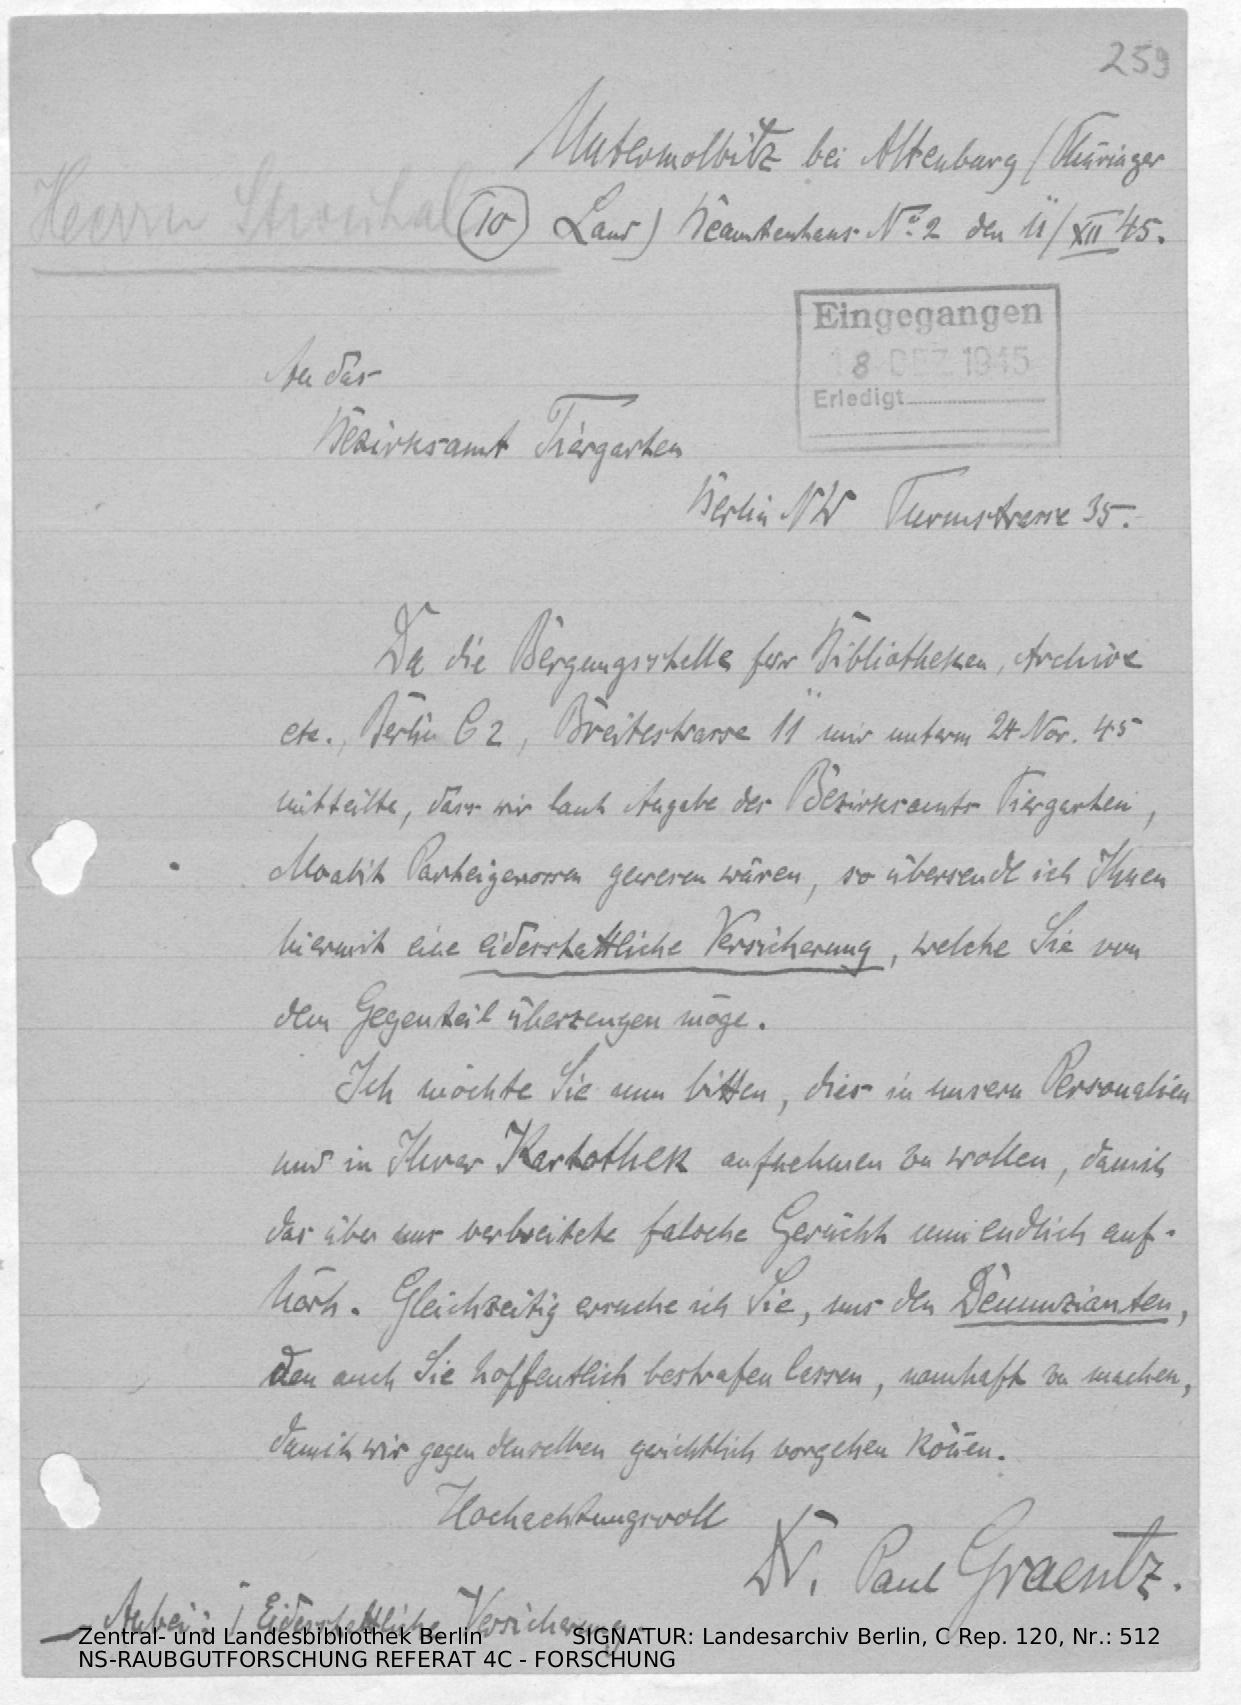 259
Untermolbitz bei Altenburg (Thüringer
Herrn Strouhal
(10) Land) Beamtenhaus No. 2 den 11/XII 45.
Eingegangen
18 DEZ 1945
Erledigt
An das
Bezirksamt Tiergarten
Berlin NW Turmstrasse 35.
Da die Bergungsstelle fur Bibliotheken, Archive
etc., Berlin C 2, Breitestrasse 11 mir unterm 24 Nov. 45
mitteilte, dass wir laut Angabe des Bezirksamts Tiergarten,
Moabit Parteigenossen gewesen wären, so übersende ich Ihnen
hiermit eine eidesstattliche Versicherung, welche Sie von
dem Gegenteil überzeugen möge.
Ich möchte Sie nun bitten, dies in unsern Personalien
und in Ihrer Kartothek aufnehmen zu wollen, damit
das über uns verbreitete falsche Gerücht nun endlich auf-
hört. Gleichzeitig ersuche ich Sie, uns den Denunzianten,
den auch Sie hoffentlich bestrafen lassen, namhaft zu machen,
damit wir gegen denselben gerichtlich vorgehen können.
Hochachtungsvoll
Dr. Paul Graentz.
Anbei: 1 Eidesstattliche Versicherung.
Zentral- und Landesbibliothek Berlin SIGNATUR: Landesarchiv Berlin, C Rep. 120, Nr.: 512
NS-RAUBGUTFORSCHUNG REFERAT 4C - FORSCHUNG